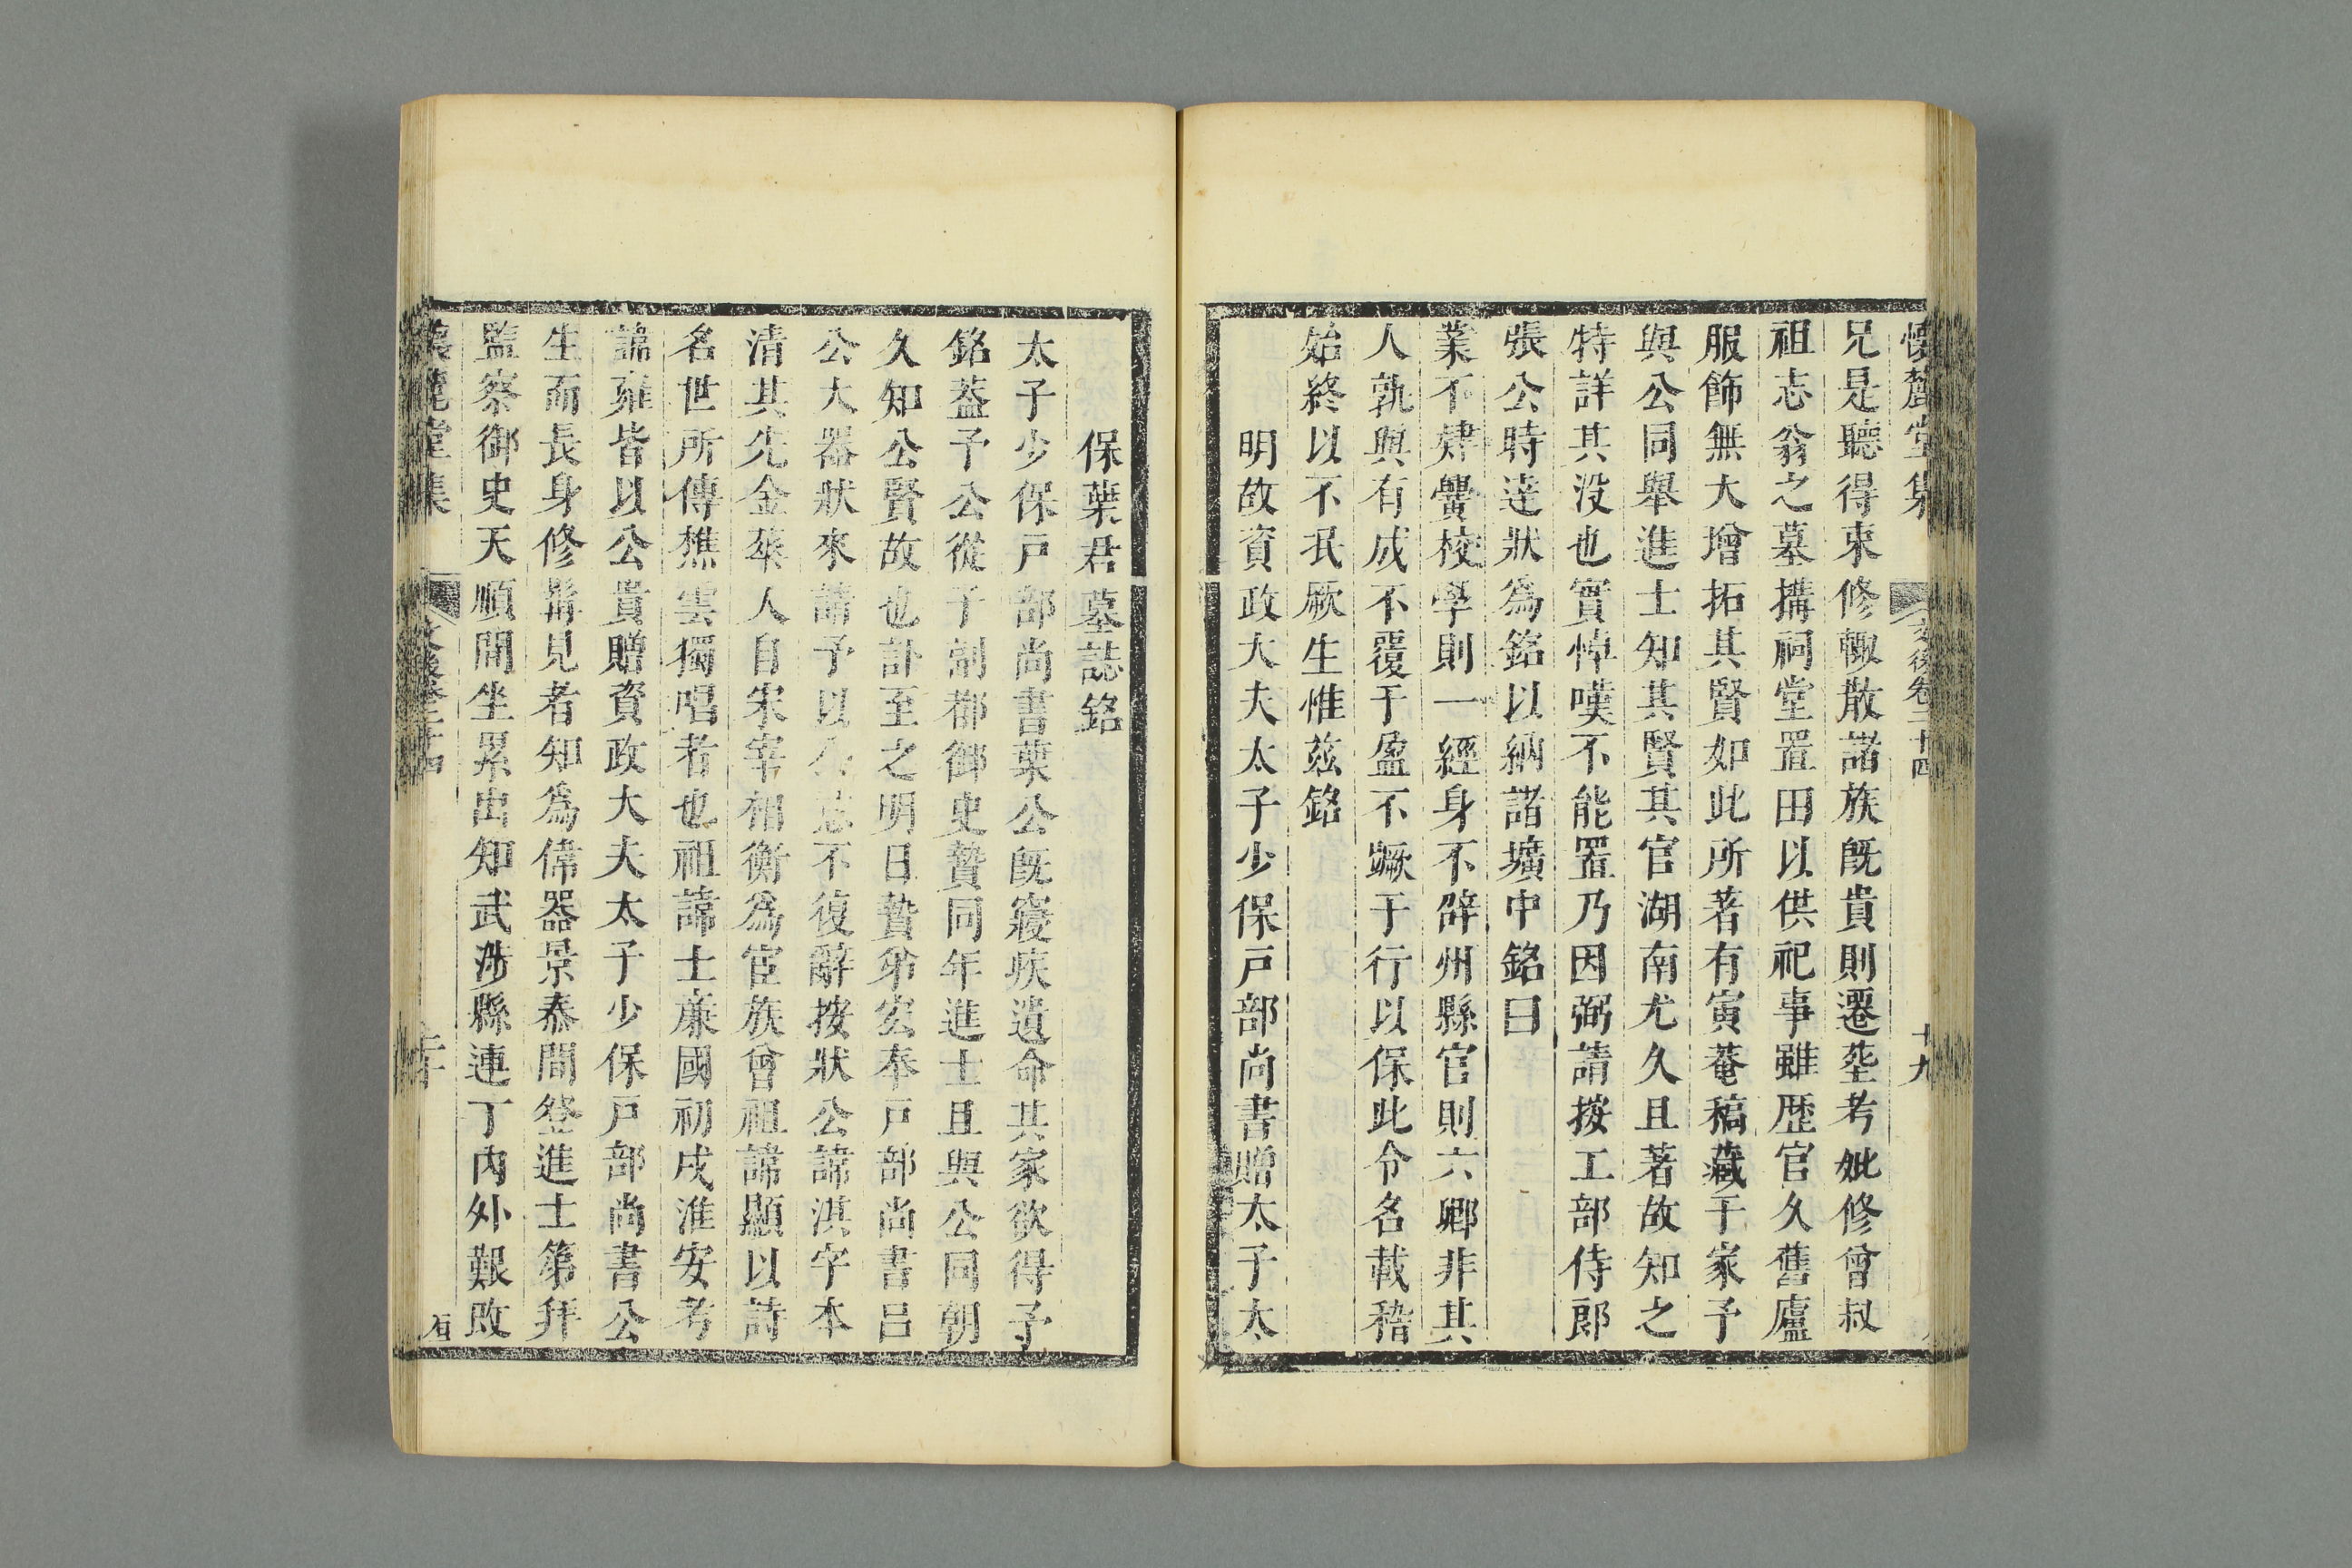 懷麓堂集 文後卷二十四 十九
兄是聽得束修輙散諸族旣貴則遷塟考妣修曾叔
祖志翁之墓搆祠堂置田以供祀事雖歴官久舊廬
服飾無大增拓其賢如此所著有寅菴稿藏于家予
與公同舉進士知其賢其官湖南尤久且著故知之
特詳其没也實悼嘆不能置乃因弼請按工部侍郎
張公時達狀為銘以納諸壙中銘曰
業不肄黌校學則一經身不辟州縣官則六卿非其
人孰與有成不覆于盈不蹶于行以保此令名載稽
始終以不泯厥生惟兹銘
明故資政大夫太子少保户部尚書贈太子太
保葉君墓誌銘
太子少保戸部尚書葉公旣寢疾遺命其家欲得予
銘葢予公從子副都御史贄同年進士且與公同朝
久知公賢故也訃至之明日贄弟宏奉戸部尚書吕
公大器狀來請予以公志不復辭按狀公諱淇字本
清其先金華人自宋宰相衡為宦族曾祖諱顯以詩
名世所傳樵雲獨唱者也祖諱士廉國初戍淮安考
諱雍皆以公貴贈資政大夫太子少保戸部尚書公
生而長身修髯見者知為偉器景泰間登進士第拜
監察御史天順間坐累出知武陟縣連丁内外艱改
懷麓堂集 文後卷二十四 二十